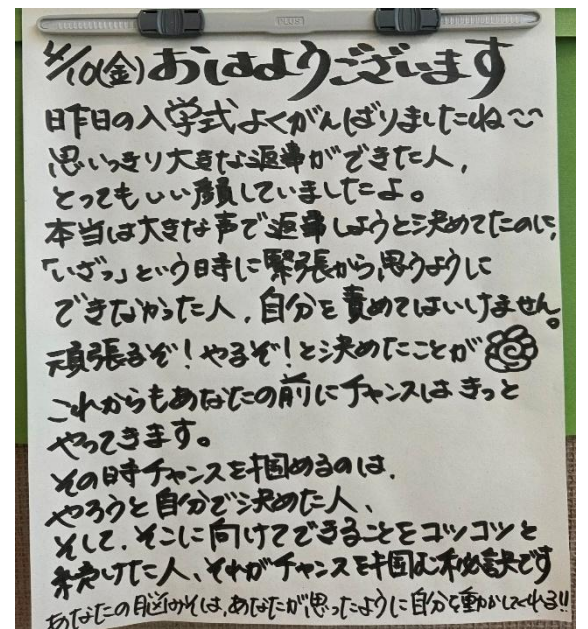 PLUS
4/10(金)おはようございます
昨日の入学式よくがんばりましたね〜
思いっきり大きな返事ができた人、
とってもいい顔していましたよ。
本当は大きな声で返事しようと決めてたのに、
「いざっ」という時に緊張から思うように
できなかった人、自分を責めてはいけません。
頑張るぞ！やるぞ！と決めたことが
これからもあなたの前にチャンスはきっと
やってきます。
その時チャンスを掴めるのは、
やろうと自分で決めた人、
そして、そこに向けてできることをコツコツと
続けた人、それがチャンスを掴む秘訣です
あなたの脳みそは、あなたが思ったように自分を動かしてくれる!!